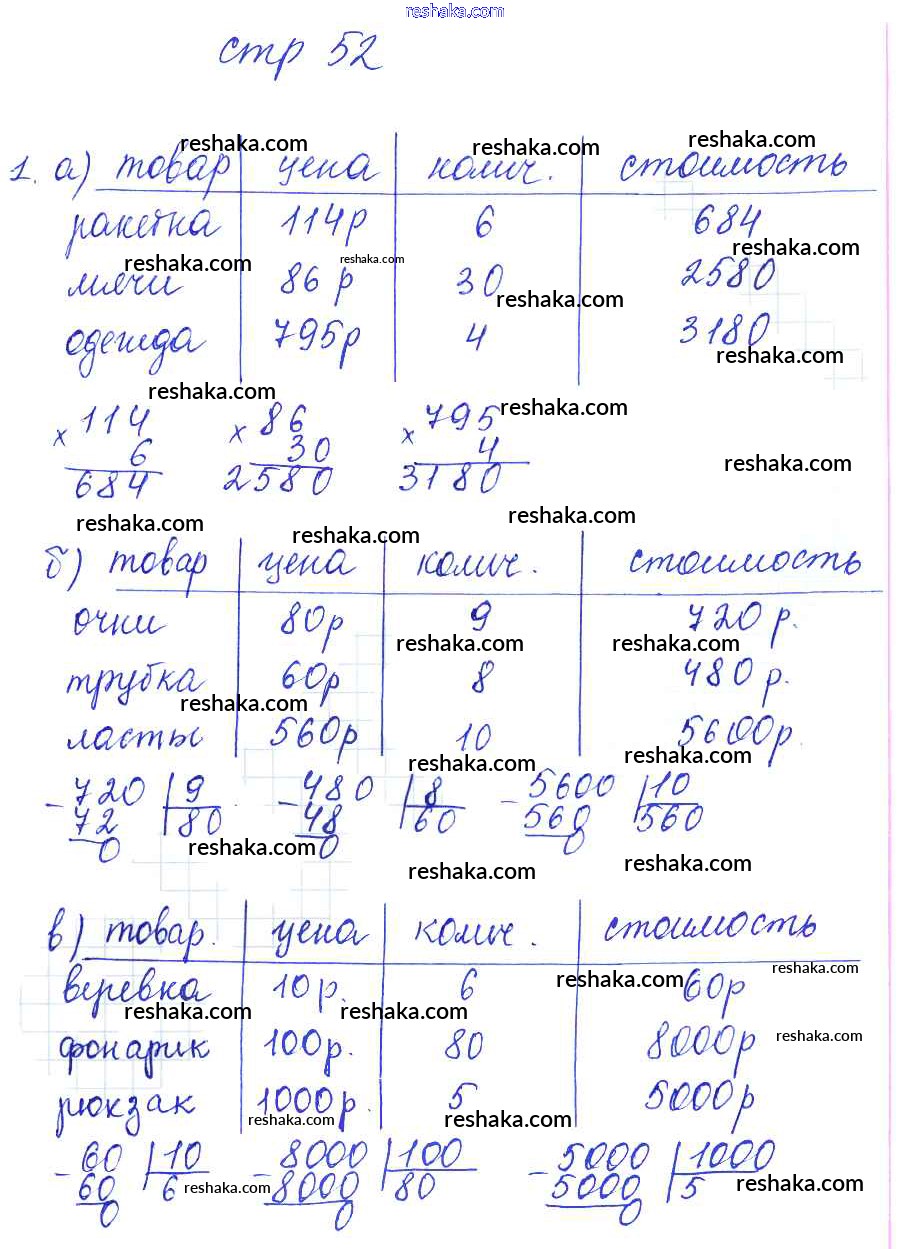 reshaka.com
стр 52
reshaka.com reshaka.com reshaka.com
1. а) товар цена колич. стоимость
ракетка 114р 6 684
reshaka.com reshaka.com reshaka.com
мячи 86 р 30 2580
reshaka.com
одежда 795р 4 3180
reshaka.com
reshaka.com reshaka.com
× 114 × 86 × 795
6 30 4
684 2580 3180
reshaka.com
reshaka.com reshaka.com reshaka.com
б) товар цена колич. стоимость
очки 80р 9 720 р.
reshaka.com reshaka.com
трубка 60р 8 480 р.
reshaka.com
ласты 560р 10 5600р.
reshaka.com reshaka.com
- 720 9 - 480 8 - 5600 10
72 80 48 60 560 560
0 0 0
reshaka.com reshaka.com reshaka.com
в) товар. цена колич. стоимость
reshaka.com
веревка 10р. 6 60р
reshaka.com
reshaka.com reshaka.com
фонарик 100р. 80 8000р
reshaka.com
рюкзак 1000р. 5 5000р
reshaka.com reshaka.com
- 60 10 - 8000 100 - 5000 1000
60 6 8000 80 5000 5
reshaka.com reshaka.com
0 0 0